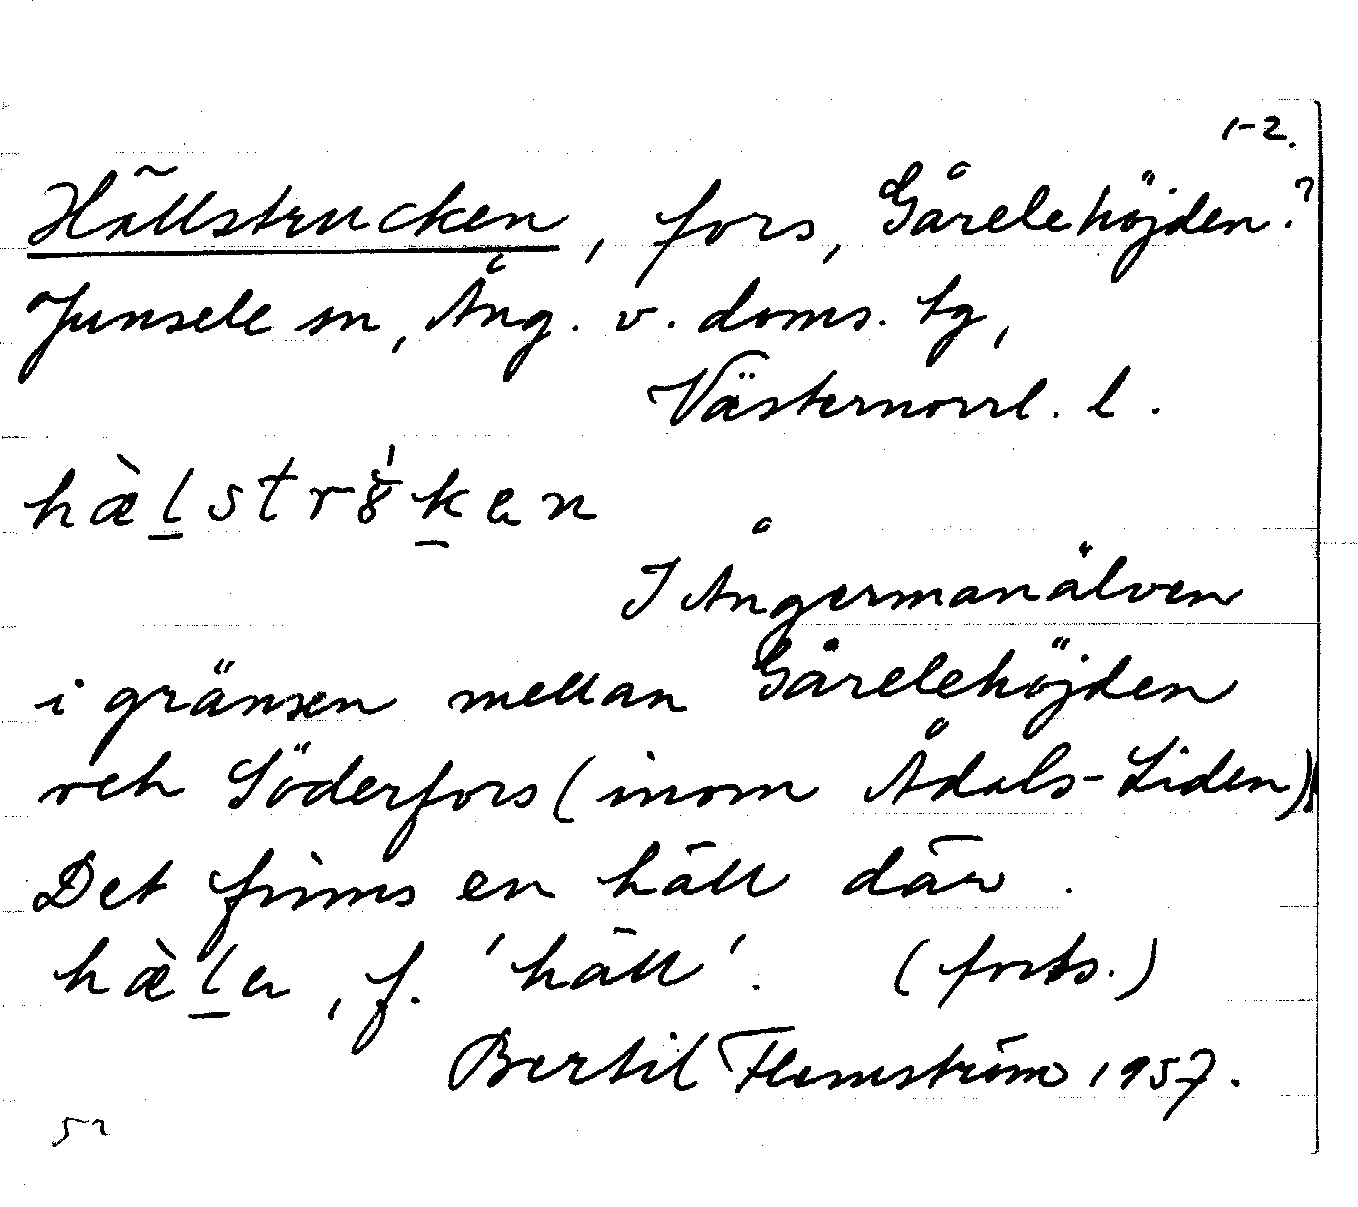 1-2.
Hällstrucken, fors, Gårelehöjden?
Junsele sn, Ång. v. doms. tg,
Västernorrl. l.
hæ̀l̠str8̍k̠en
I Ångermanälven
i gränsen mellan Gårelehöjden
och Söderfors (inom Ådals-Liden)
Det finns en häll där.
hæ̀l̠a, f. 'häll'. (forts.)
Bertil Flemström 1957.